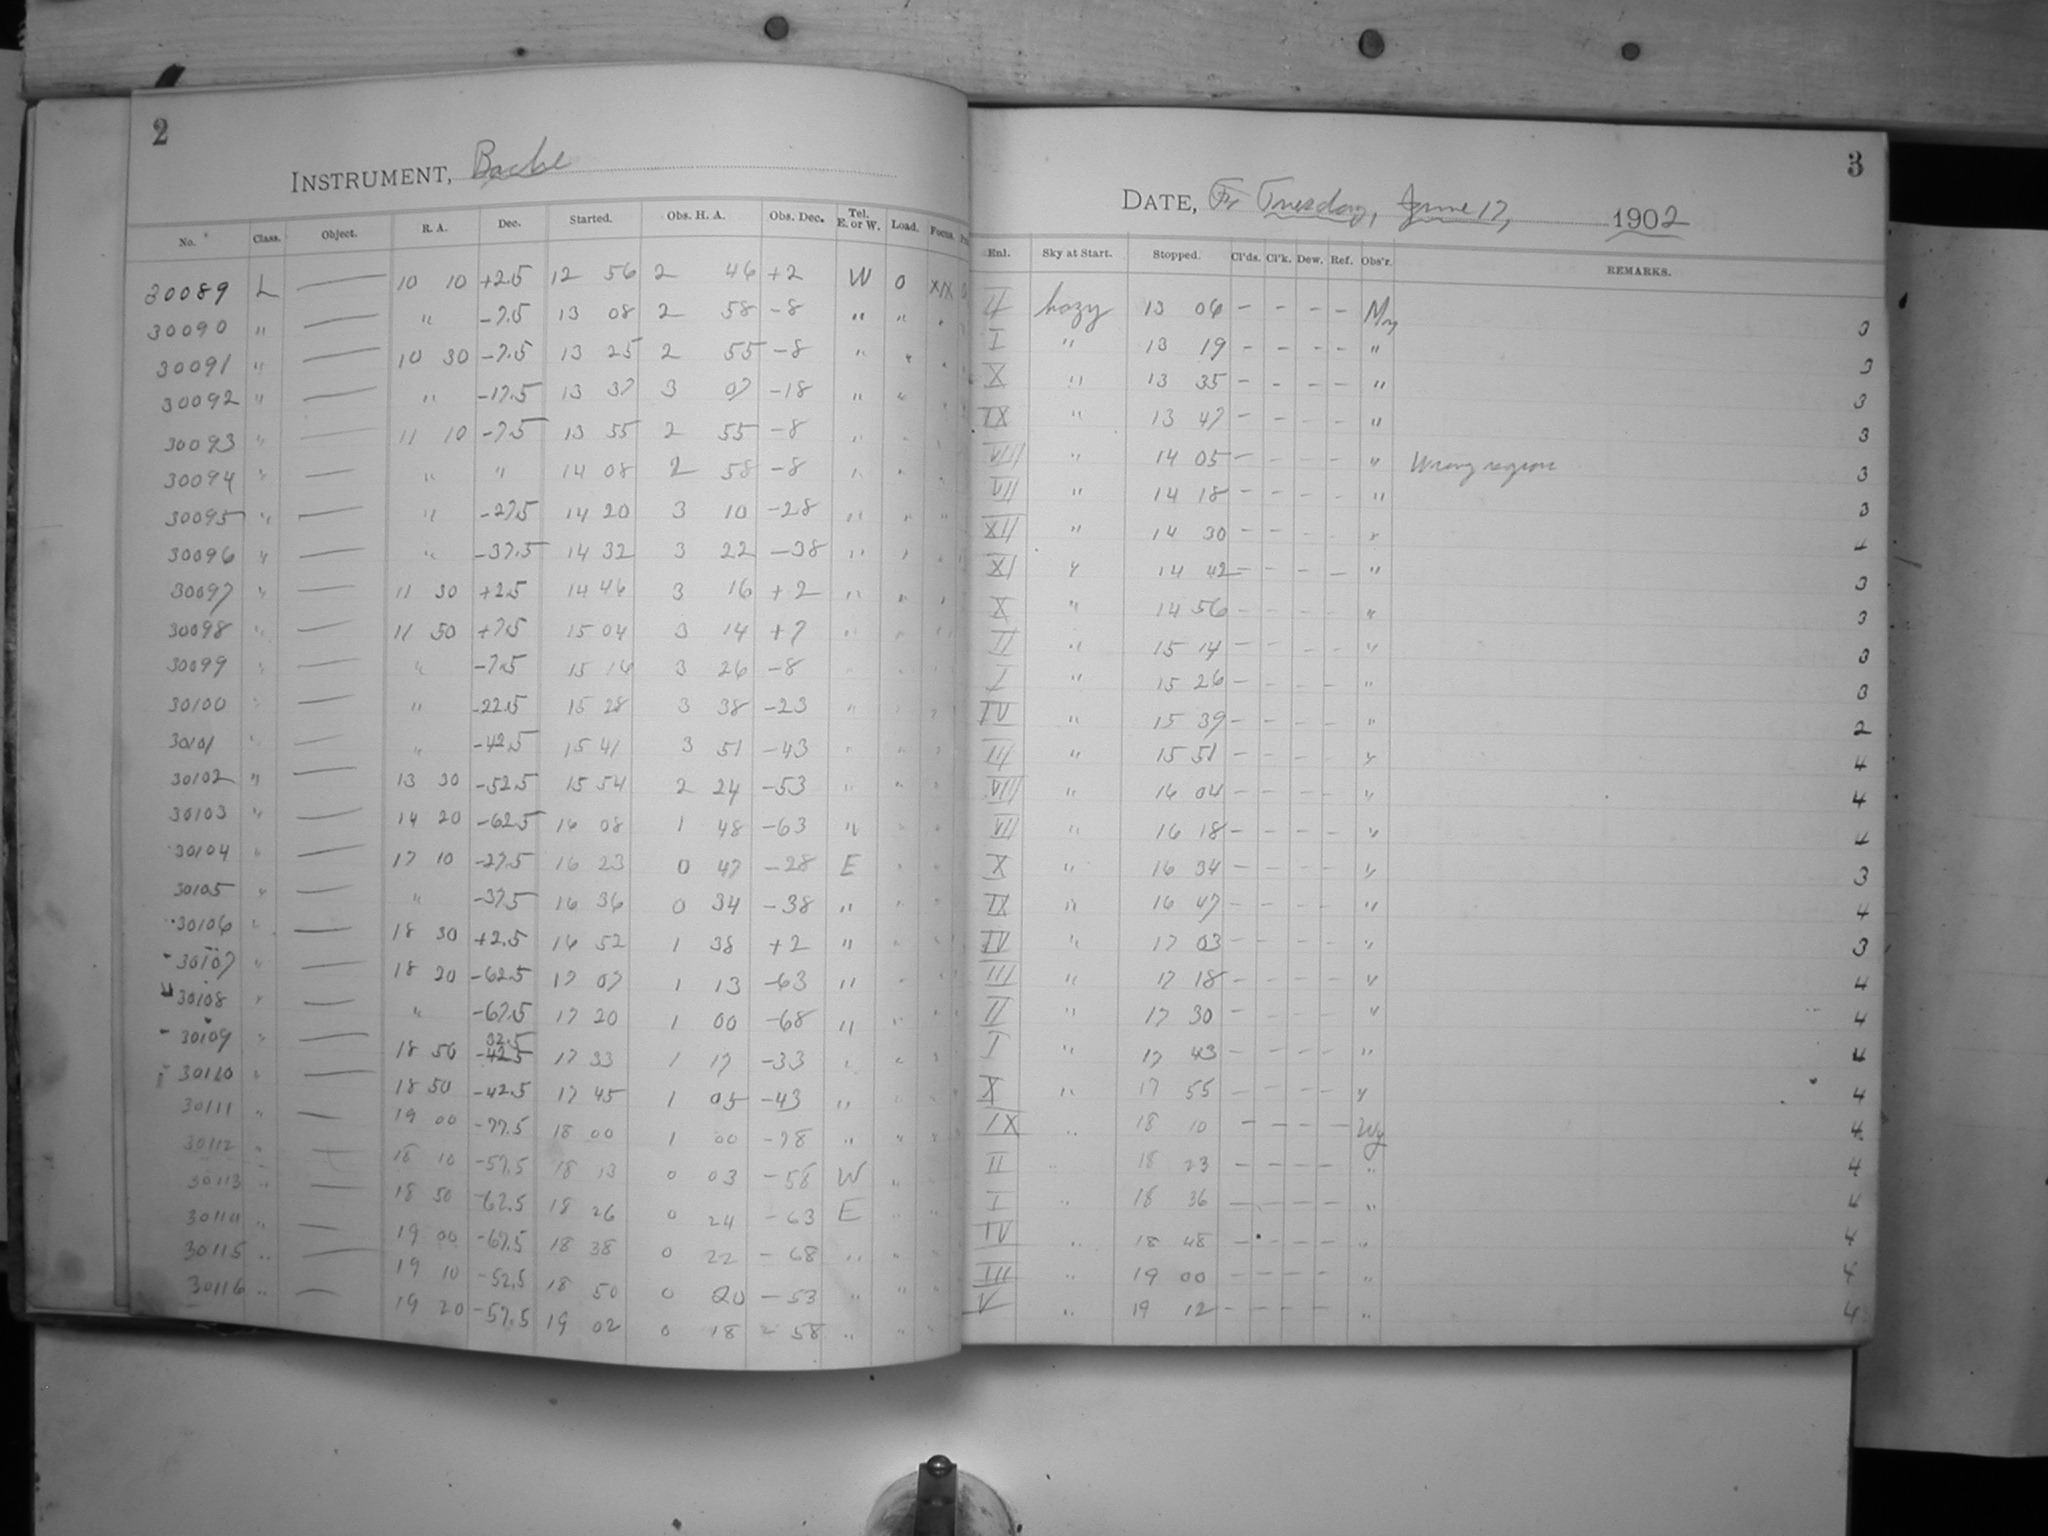 2
INSTRUMENT, Bache
No. Class. Object. R. A. Dec. Started. Obs. H. A. Obs. Dec. Tel. E. or W. Load. Focus.
30089 L —— 10 10 +2.5 12 56 2 46 +2 W 0 XIX
30090 " —— " -7.5 13 08 2 58 -8 " "
30091 " —— 10 30 -7.5 13 25 2 55 -8 " "
30092 " —— " -17.5 13 37 3 07 -18 " "
30093 " —— 11 10 -7.5 13 55 2 55 -8 " "
30094 " —— " " 14 08 2 58 -8 " "
30095 " —— " -27.5 14 20 3 10 -28 " " "
30096 " —— " -37.5 14 32 3 22 -38 " "
30097 " —— 11 30 +2.5 14 46 3 16 +2 " "
30098 " —— 11 50 +7.5 15 04 3 14 +7 " " "
30099 " —— " -7.5 15 16 3 26 -8 " "
30100 " —— " -22.5 15 28 3 38 -23 " " "
30101 " —— " -42.5 15 41 3 51 -43 " " "
30102 " —— 13 30 -52.5 15 54 2 24 -53 " " "
30103 " —— 14 20 -62.5 16 08 1 48 -63 " " "
30104 " —— 17 10 -27.5 16 23 0 47 -28 E " "
30105 " —— " -37.5 16 36 0 34 -38 " " "
30106 " —— 18 30 +2.5 16 52 1 38 +2 " " "
30107 " —— 18 20 -62.5 17 07 1 13 -63 " " "
30108 " —— " -67.5 17 20 1 00 -68 " " "
32.5
30109 " —— 18 50 -42.5 17 33 1 17 -33 " " "
30110 " —— 18 50 -42.5 17 45 1 05 -43 " " "
30111 " —— 19 00 -77.5 18 00 1 00 -78 " " "
30112 " —— 18 10 -57.5 18 13 0 03 -58 W "
30113 " —— 18 50 -62.5 18 26 0 24 -63 E " "
30114 " —— 19 00 -67.5 18 38 0 22 -68 " " "
30115 " —— 19 10 -52.5 18 50 0 20 -53 " " "
30116 " —— 19 20 -57.5 19 02 0 18 -58 " " "
3
DATE, Fr Tuesday, June 17, 1902
Enl. Sky at Start. Stopped. Cl'ds. Cl'k. Dew. Ref. Obs'r. REMARKS.
II hazy 13 06 - - - - My 3
I " 13 19 - - - - " 3
X " 13 35 - - - - " 3
IX " 13 47 - - - - " 3
VIII " 14 05 - - - - " Wrong region 3
VII " 14 18 - - - - " 3
XII " 14 30 - - - - " 4
XI " 14 42 - - - - " 3
X " 14 56 - - - - " 3
II " 15 14 - - - - " 3
I " 15 26 - - - - " 3
IV " 15 39 - - - - " 2
III " 15 51 - - - - " 4
VIII " 16 04 - - - - " 4
VII " 16 18 - - - - " 4
X " 16 34 - - - - " 3
IX " 16 47 - - - - " 4
IV " 17 03 - - - - " 3
III " 17 18 - - - - " 4
II " 17 30 - - - - " 4
I " 17 43 - - - - " 4
X " 17 55 - - - - " 4
IX " 18 10 - - - - Wy 4
II " 18 23 - - - - " 4
I " 18 36 - - - - " 4
IV " 18 48 - - - - " 4
III " 19 00 - - - - " 4
V " 19 12 - - - - " 4